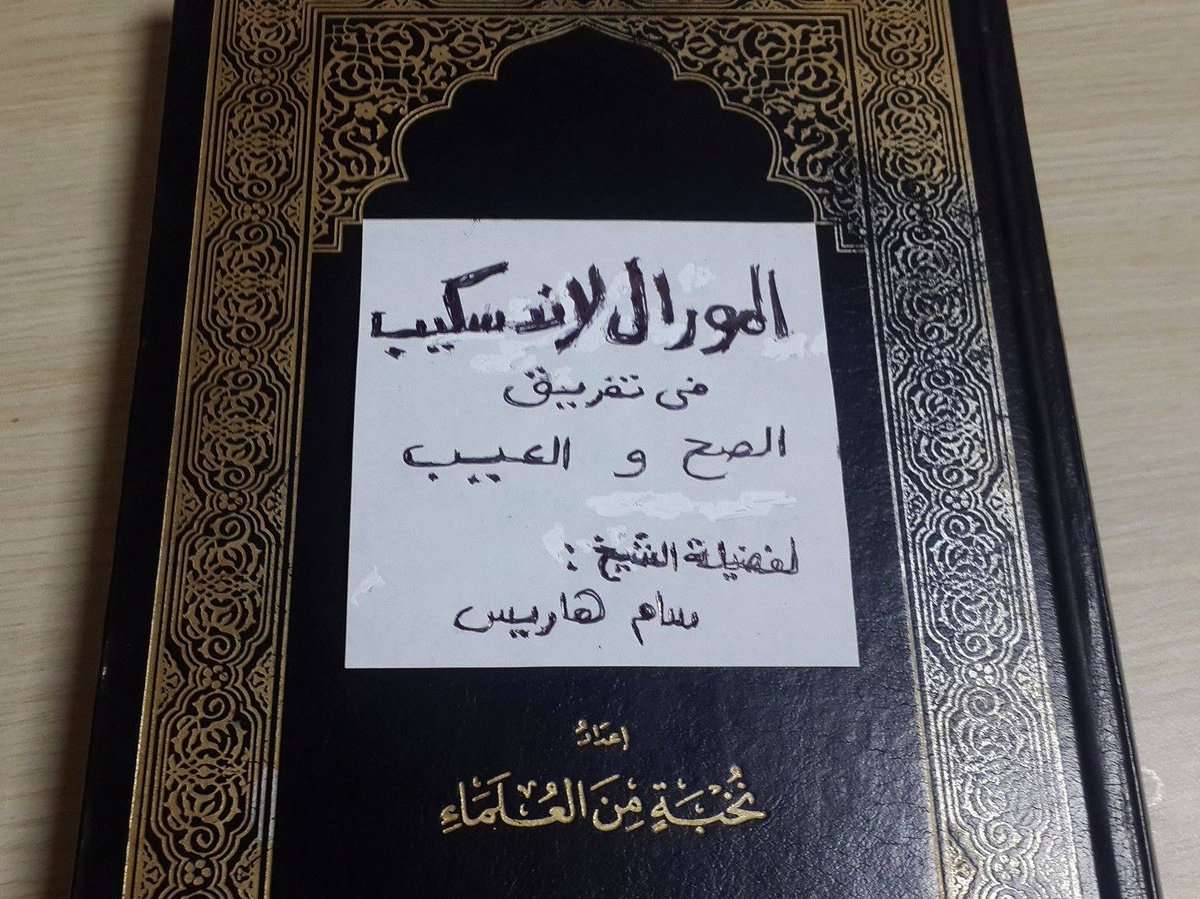 المورال لاندسكيب
في تفرييق
الصح و العييب
لفضيلة الشيخ :
سام هاريس
إعداد
نُخْبَةٍ مِنَ العُلَمَاءِ